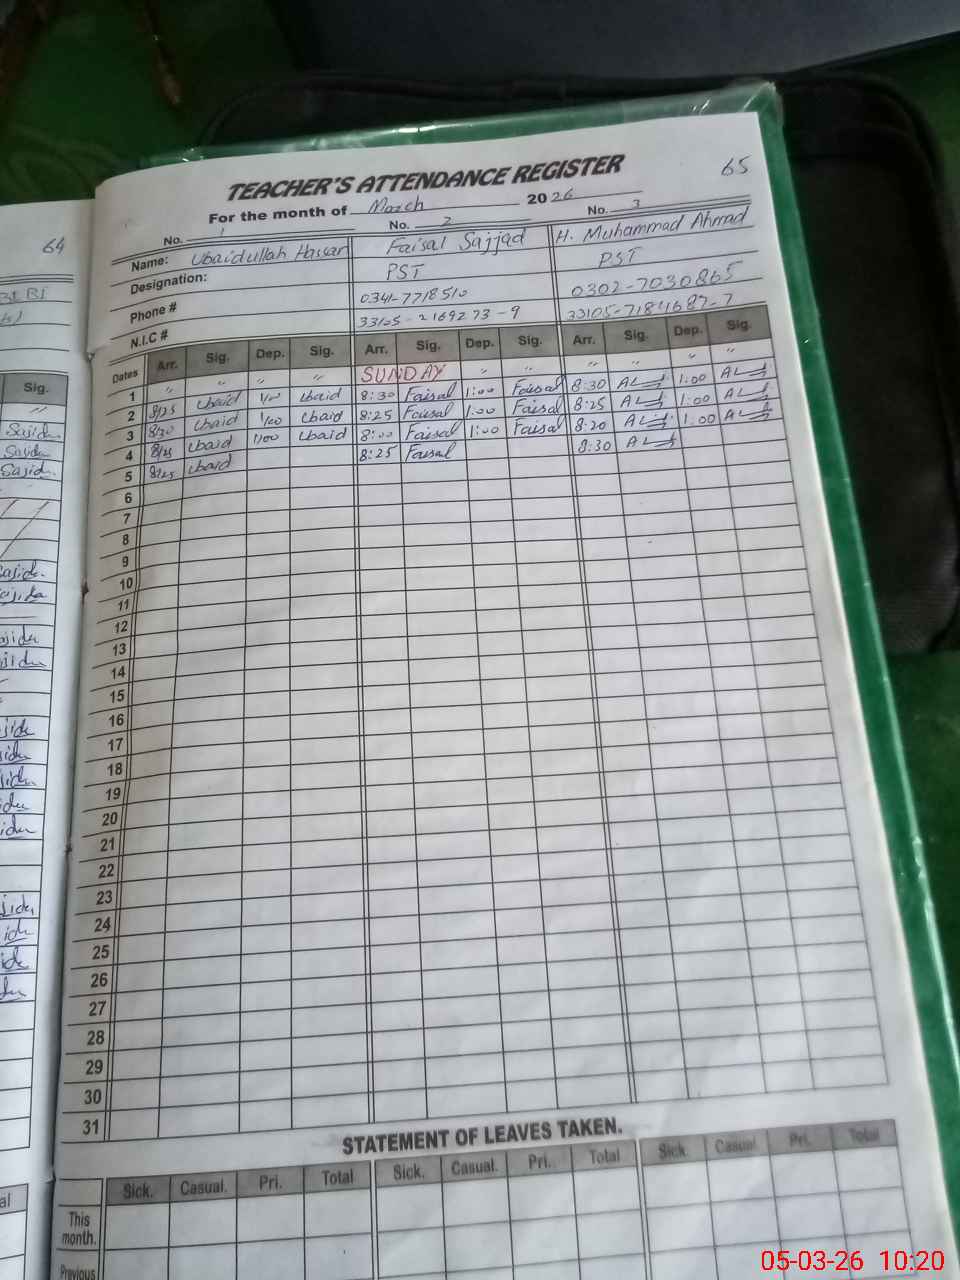 64
65
TEACHER'S ATTENDANCE REGISTER
For the month of March 2026
No. 1 No. 2 No. 3
Name: Ubaidullah Hassan Faisal Sajjad H. Muhammad Ahmad
Designation: PST PST
Phone # 0341-7718510 0302-7030865
N.I.C # 33105-2169273-9 33105-7184687-7
Dates Arr. Sig. Dep. Sig. Arr. Sig. Dep. Sig. Arr. Sig. Dep. Sig.
1 " " " " SUNDAY " " " " " "
2 8/25 Ubaid 1/00 Ubaid 8:30 Faisal 1:00 Faisal 8:30 1:00
3 8/30 Ubaid 1/00 Ubaid 8:25 Faisal 1:00 Faisal 8:25 1:00
4 8/25 Ubaid 1/00 Ubaid 8:00 Faisal 1:00 Faisal 8:20 1:00
5 8/25 Ubaid 8:25 Faisal 8:30
6
7
8
9
10
11
12
13
14
15
16
17
18
19
20
21
22
23
24
25
26
27
28
29
30
31
STATEMENT OF LEAVES TAKEN.
Sick. Casual. Pri. Total Sick. Casual. Pri. Total Sick. Casual. Pri. Total
This month.
Previous
05-03-26 10:20